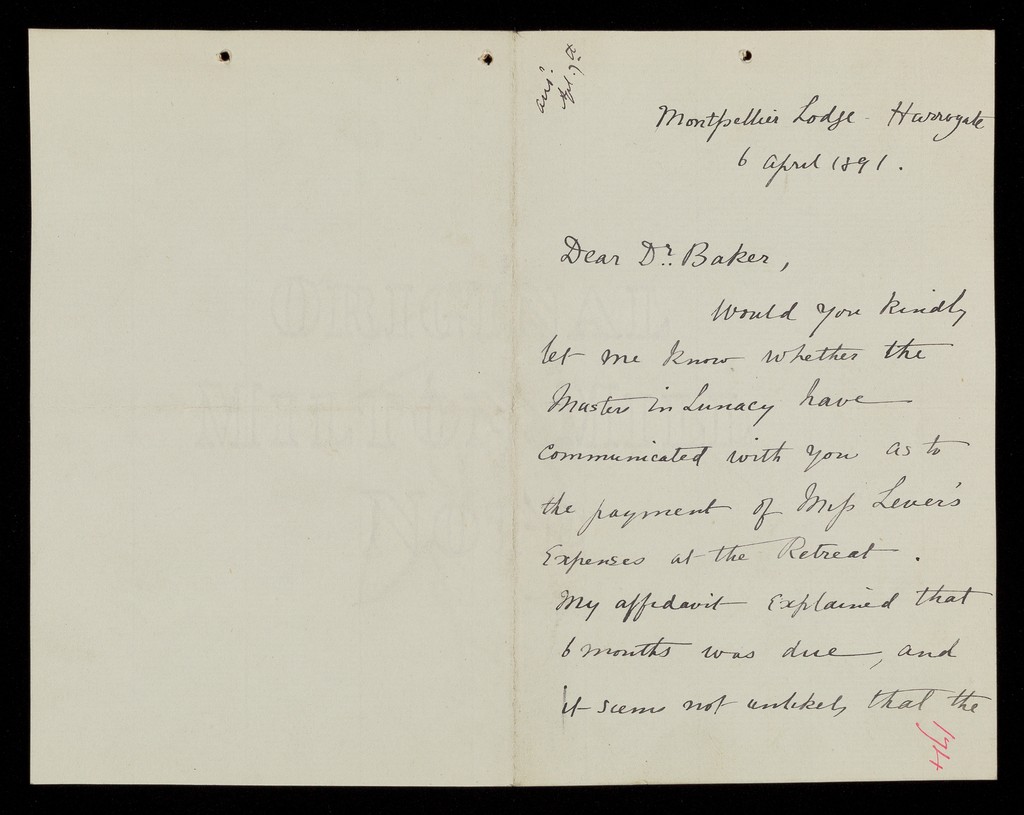 ansd
Apl. 7th
Montpellier Lodge - Harrogate
6 April 1891.
Dear Dr. Baker,
Would you kindly
let me know whether the
Masters in Lunacy have
communicated with you as to
the payment of Miss Lever's
Expenses at the Retreat.
My affidavit explained that
6 months was due, and
it seems not unlikely that the